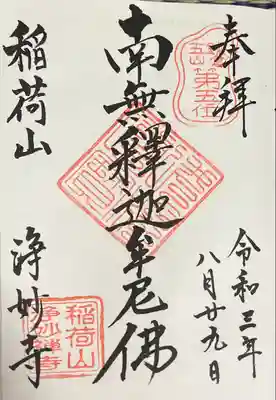 奉拝
五山第五位
令和三年
八月廿九日
南無釋迦牟尼佛
稲荷山
浄妙寺
稲荷山
浄妙禅寺